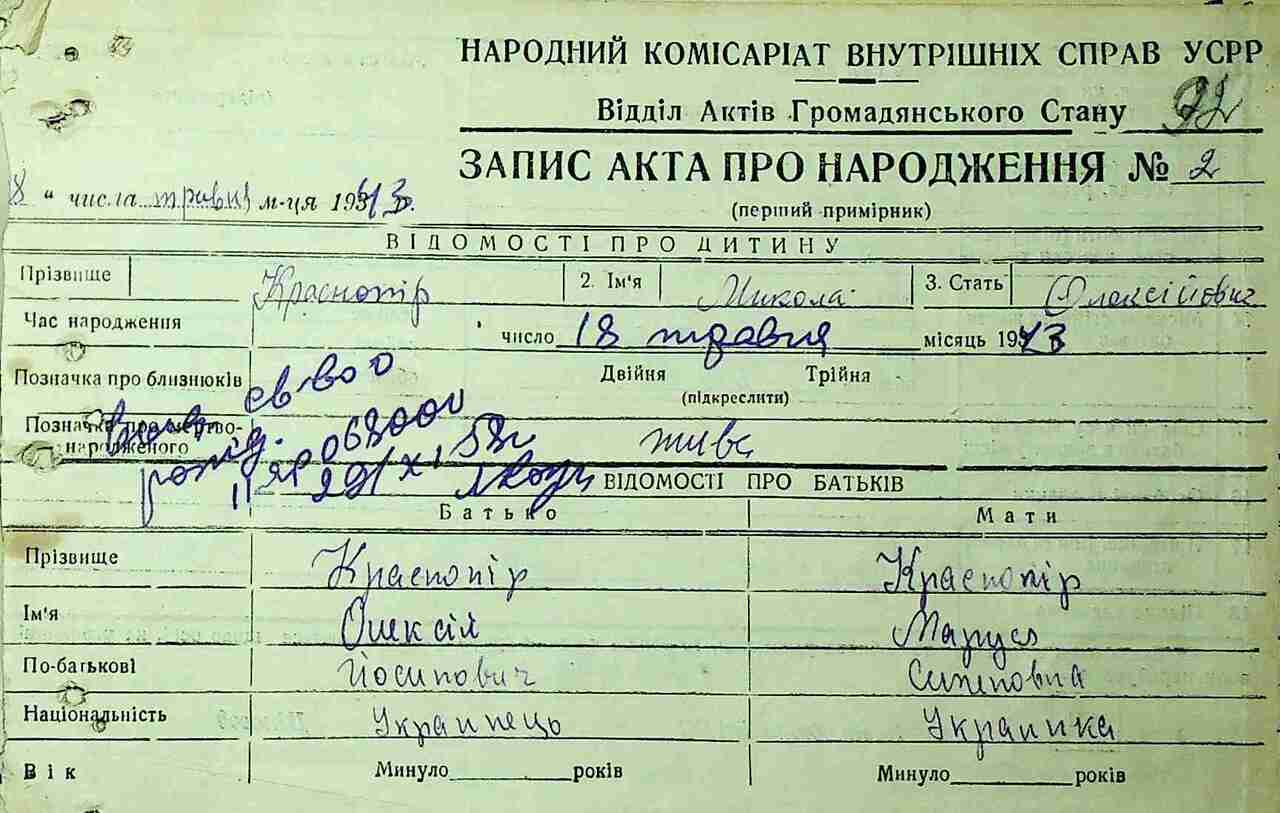 НАРОДНИЙ КОМІСАРІАТ ВНУТРІШНІХ СПРАВ УСРР
Відділ Актів Громадянського Стану 92
ЗАПИС АКТА ПРО НАРОДЖЕННЯ № 2
(перший примірник)
18 " числа травня м-ця 1943.
ВІДОМОСТІ ПРО ДИТИНУ
Прізвище Краснопір 2. Ім'я Микола 3. Стать Олексійович
Час народження число 18 травня місяць 1943
Позначка про близнюків Двійня Трійня
(підкреслити)
Позначка про мертво-
народженого живе
св-во о
рожд.
068000
29/XI 58г
ВІДОМОСТІ ПРО БАТЬКІВ
Батько Мати
Прізвище Краснопір Краснопір
Ім'я Олексій Маруся
По-батькові Йосипович
Національність Украинець Украинка
Вік Минуло років Минуло років